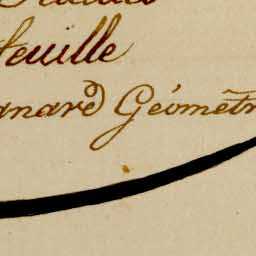 feuille
gnard Géomètr